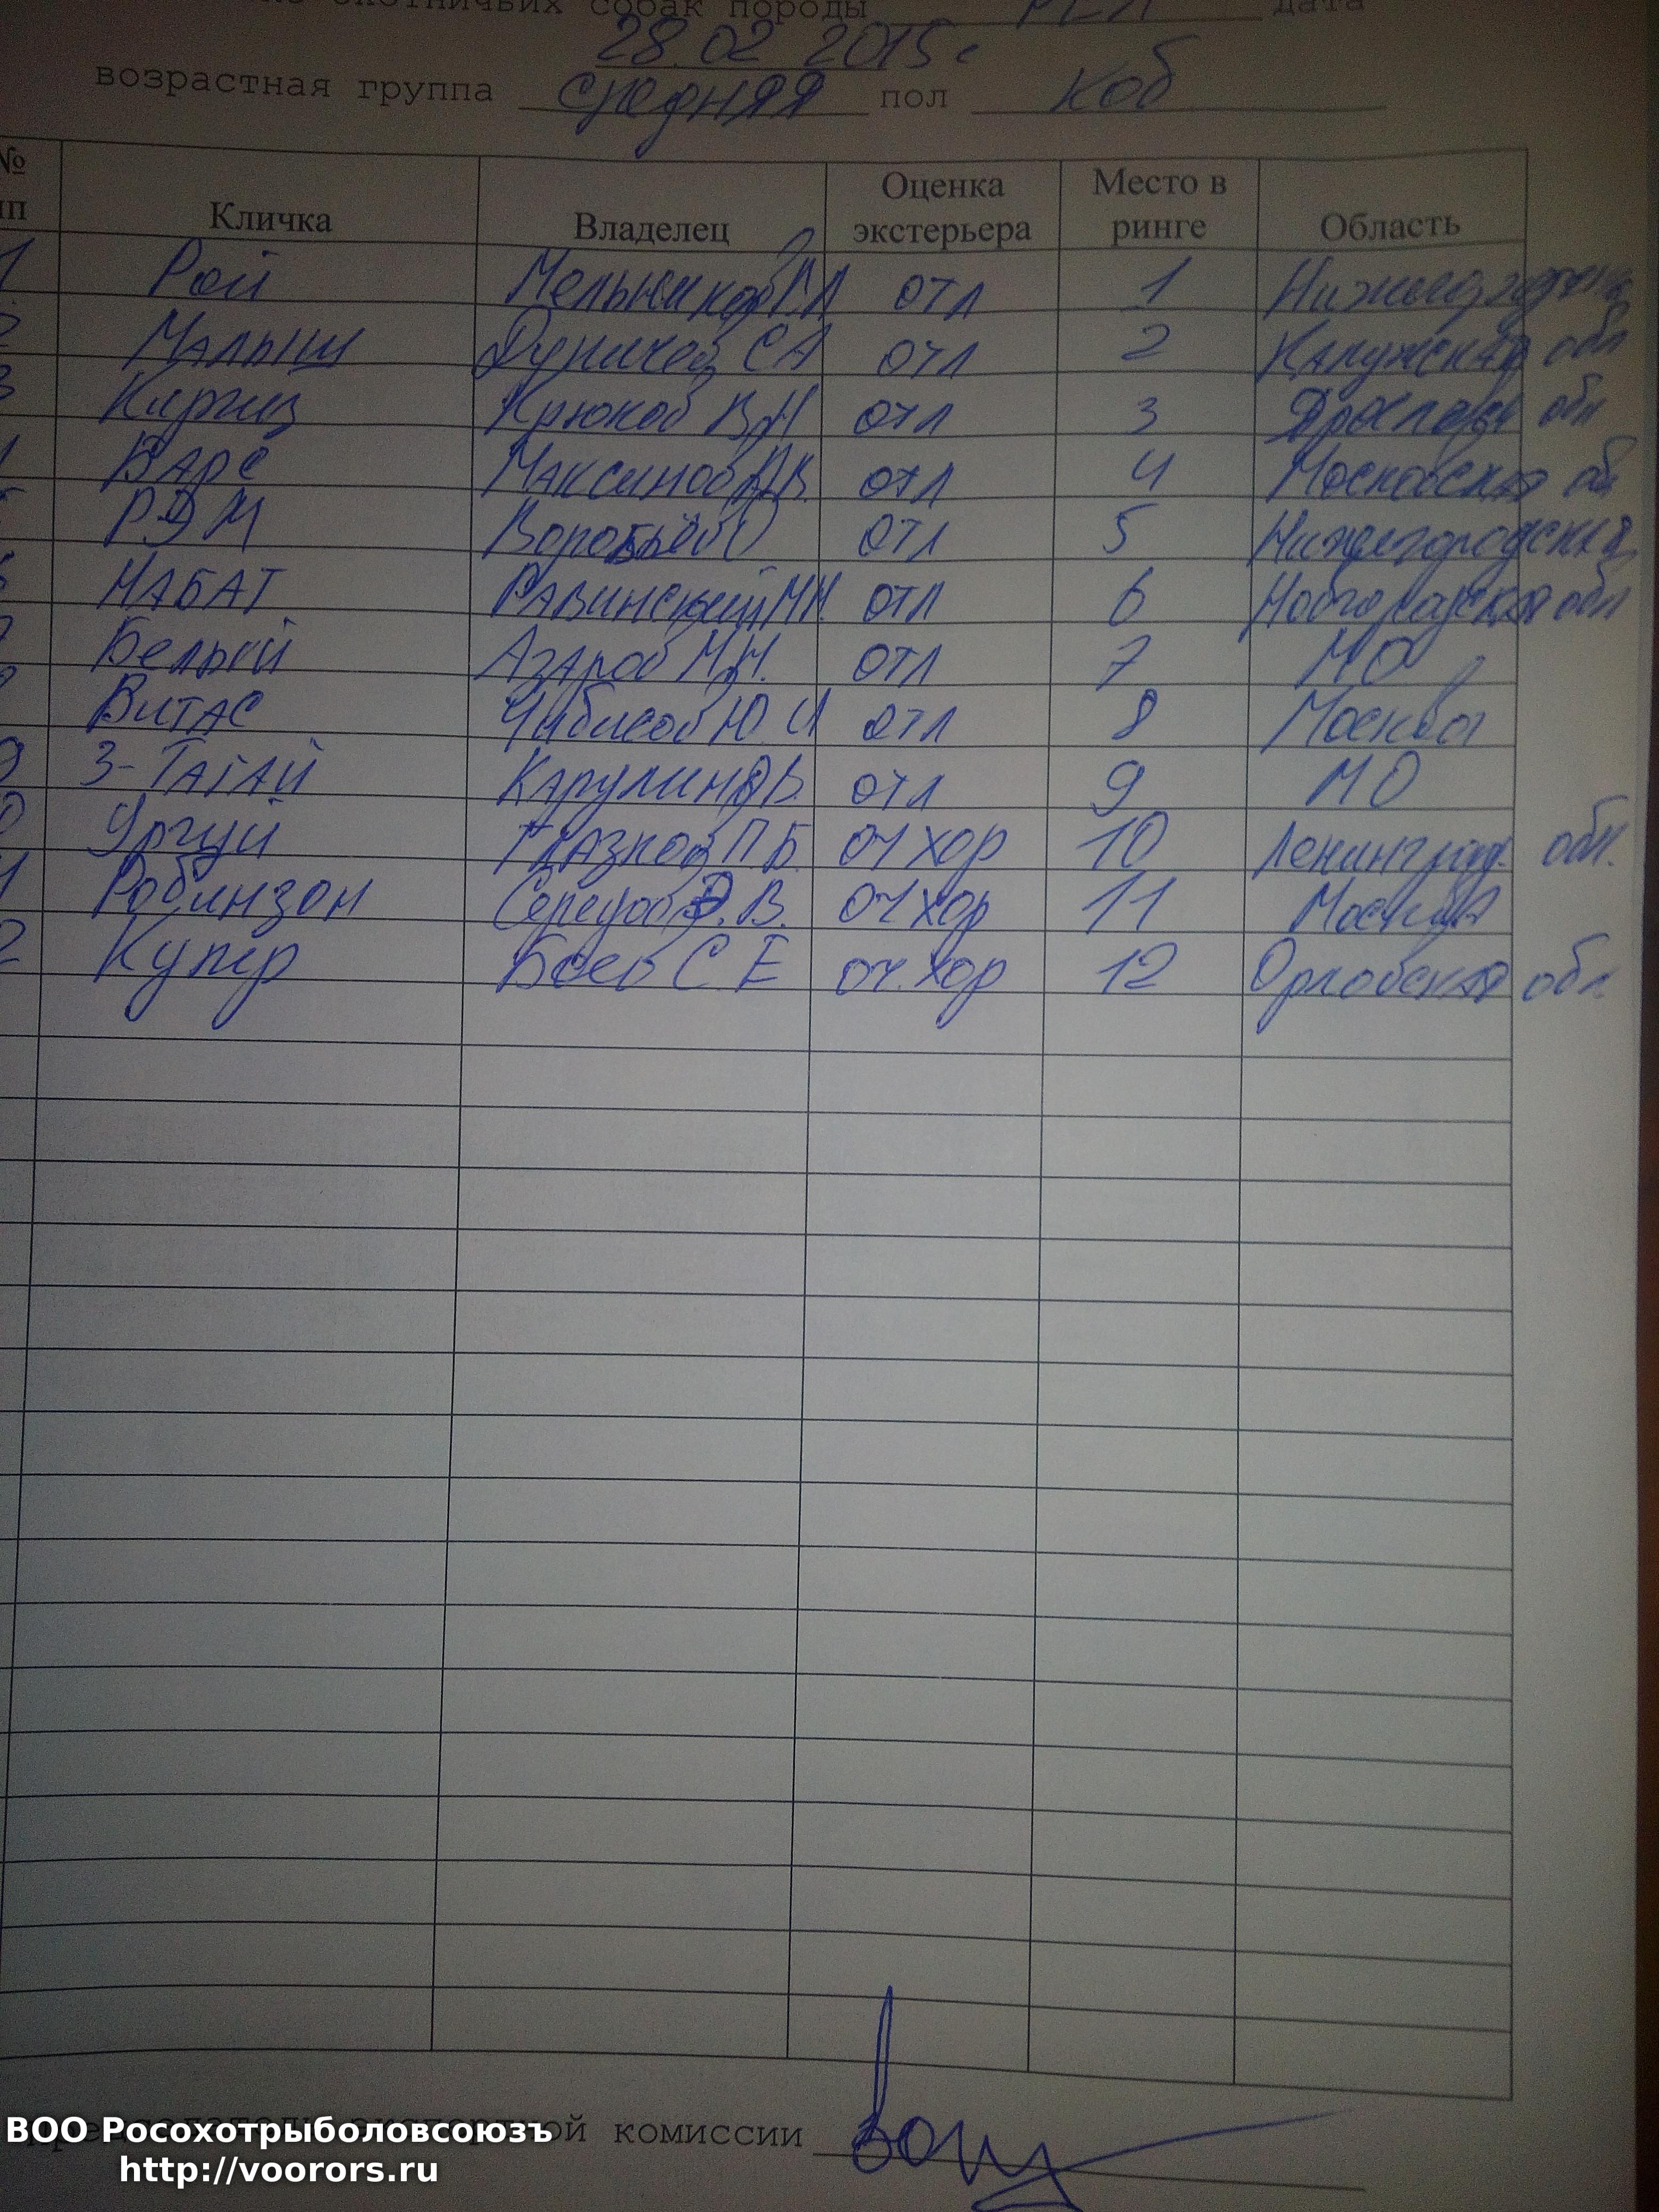 охотничьих собак породы РЕЛ дата
28.02 2015г
возрастная группа средняя пол коб
№ Кличка Владелец Оценка экстерьера Место в ринге Область
1 Рой Мельников отл 1
2 Малыш СА отл 2 Калужская обл
3 Киргиз Крюков ВН отл 3 обл
Варс Максимов отл 4 Московская об
РЭМ Воробьёв отл 5 Нижегородская
НАБАТ Равинский МН. отл 6 Новгородская обл
Белый Азаров М.Н. отл 7 МО
Витас Чибисов Ю И отл 8 Москва
9 З-Тагай Карулин отл 9 МО
0 Ургуй Глазков П Б оч хор 10 Ленинград. обл.
Робинзон В. оч хор 11 Москва
2 Купер Боев С Е оч. хор 12 Орловская обл.
комиссии
ВОО Росохотрыболовсоюзъ
http://voorors.ru